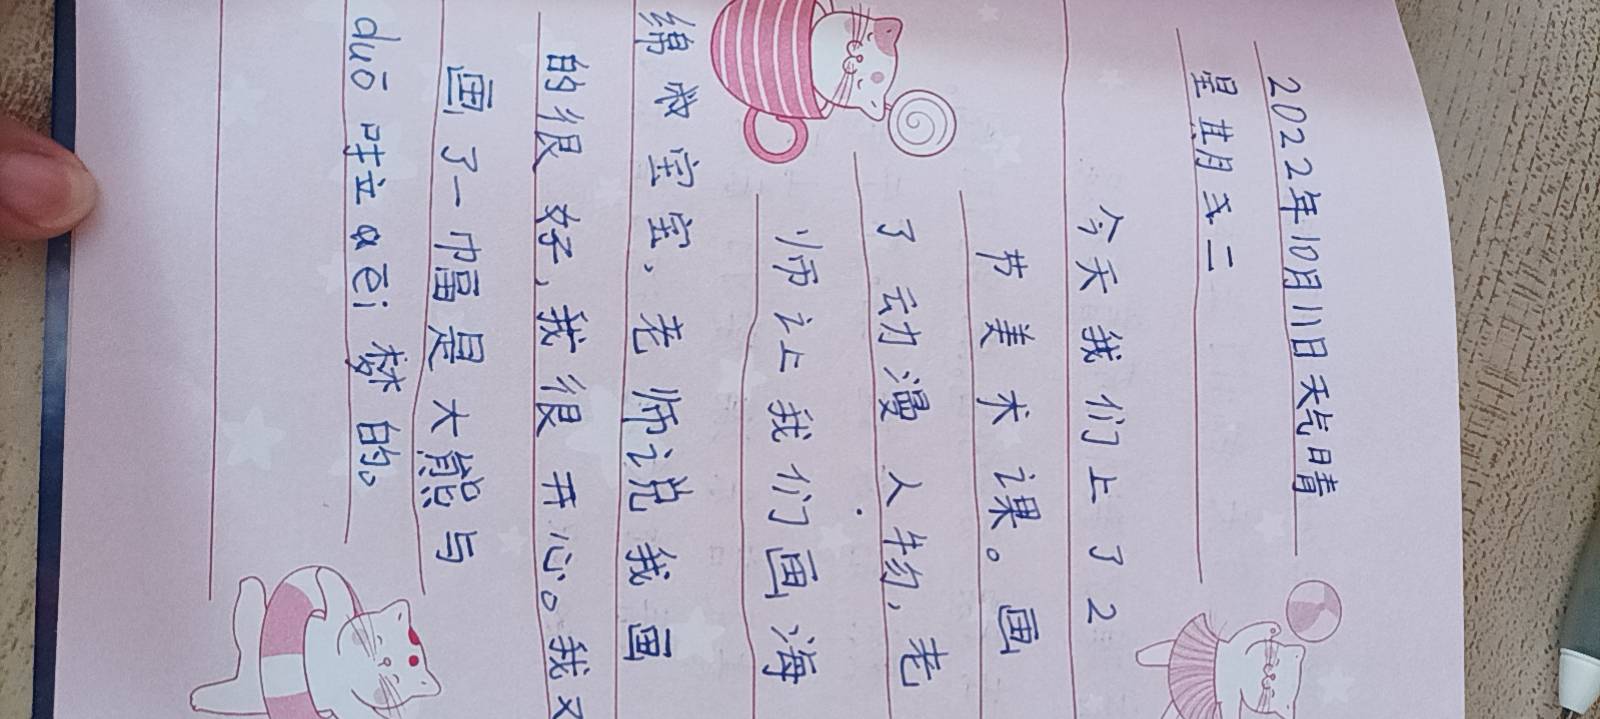 2022年10月11日天气晴
星期二
今天我们上了2
节美术课。画
了动漫人物,老
师让我们画海
绵宝宝、老师说我画
的很好,我很开心。我又
画了一幅是大熊与
duō啦aēi梦的。